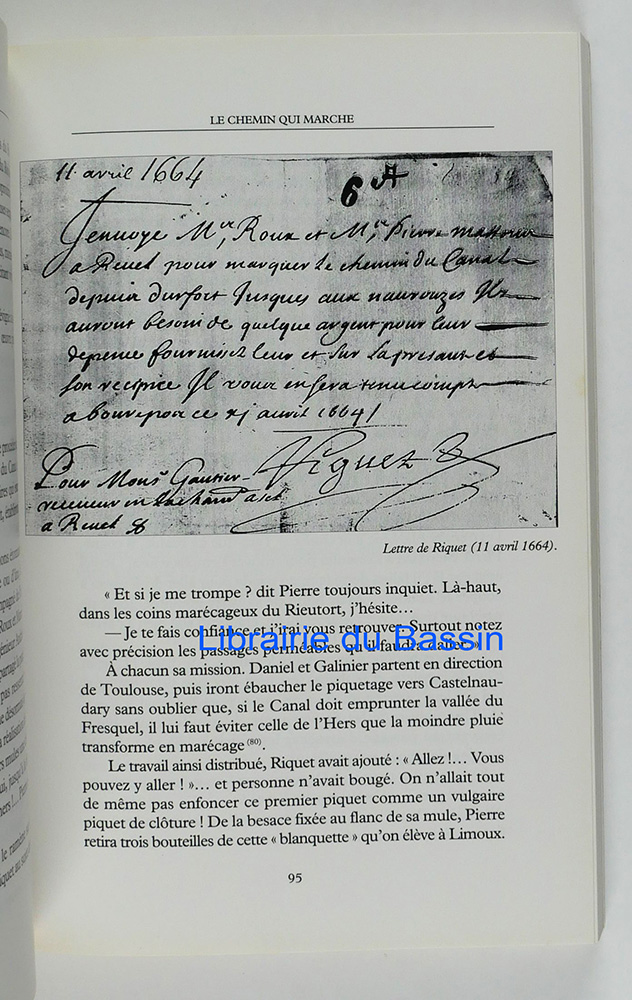 LE CHEMIN QUI MARCHE
11. avril 1664
6 A
Jenuoye Mr, Roux et Mr, Pierre
a Reuel pour marquer le chemin du Canal
depuis durfort Jusques aux naurouzes Ilz
auront besoin de quelque argent pour leur
depence fournisez leur et sur la presante et
son recipice Il vous en sera tenu compte
a bonrepos ce xj auril 1664 /
Riquez
Pour Monsr Gautier
receueur en
a Reuel
Lettre de Riquet (11 avril 1664).
« Et si je me trompe ? dit Pierre toujours inquiet. Là-haut,
dans les coins marécageux du Rieutort, j'hésite…
— Je te fais confiance et j'irai vous retrouver. Surtout notez
avec précision les passages perméables qu'il faudra
Librairie du Bassin
À chacun sa mission. Daniel et Galinier partent en direction
de Toulouse, puis iront ébaucher le piquetage vers Castelnau-
dary sans oublier que, si le Canal doit emprunter la vallée du
Fresquel, il lui faut éviter celle de l'Hers que la moindre pluie
transforme en marécage (80).
Le travail ainsi distribué, Riquet avait ajouté : « Allez !… Vous
pouvez y aller ! »… et personne n'avait bougé. On n'allait tout
de même pas enfoncer ce premier piquet comme un vulgaire
piquet de clôture ! De la besace fixée au flanc de sa mule, Pierre
retira trois bouteilles de cette « blanquette » qu'on élève à Limoux.
95